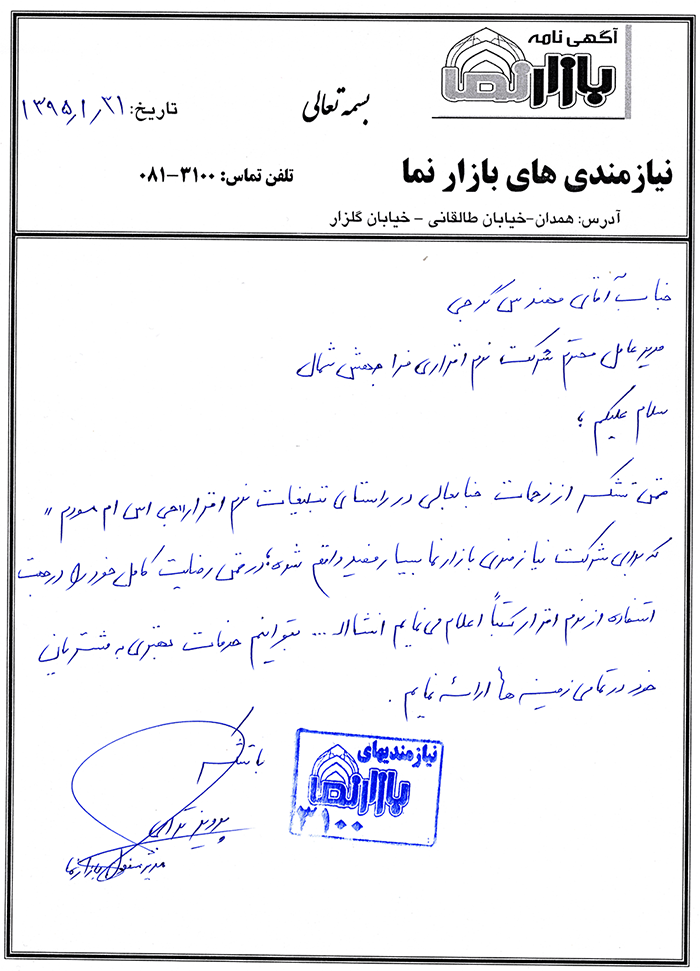 آگهی نامه
بازار نما
بسمه تعالی
تاریخ: ۱۳۹۵/۱/۲۱
نیازمندی های بازار نما
تلفن تماس: ۳۱۰۰-۰۸۱
آدرس: همدان-خیابان طالقانی - خیابان گلزار
جناب آقای مهندس گرجی
مدیر عامل محترم شرکت نرم افزاری فرا جهش شمال
سلام علیکم ؛
ضمن تشکر از زحمات جنابعالی در راستای تبلیغات نرم افزار "جی اس ام مودم"
که برای شرکت نیازمندی بازار نما بسیار مفید واقع شده؛ در ضمن رضایت کامل خود را در جهت
استفاده از نرم افزار کتباً اعلام می نمایم انشاا... بتوانیم خدمات بهتری به مشتریان
خود در تمامی زمینه ها ارائه نمایم .
با تشکر
پرویز
مدیر مسئول بازار نما
نیازمندیهای
بازار نما
۳۱۰۰